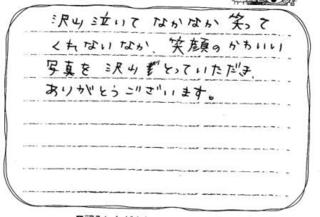 沢山泣いて なかなか 笑って
くれないなか、笑顔のかわいい
写真を 沢山 とっていただき
ありがとうございます。